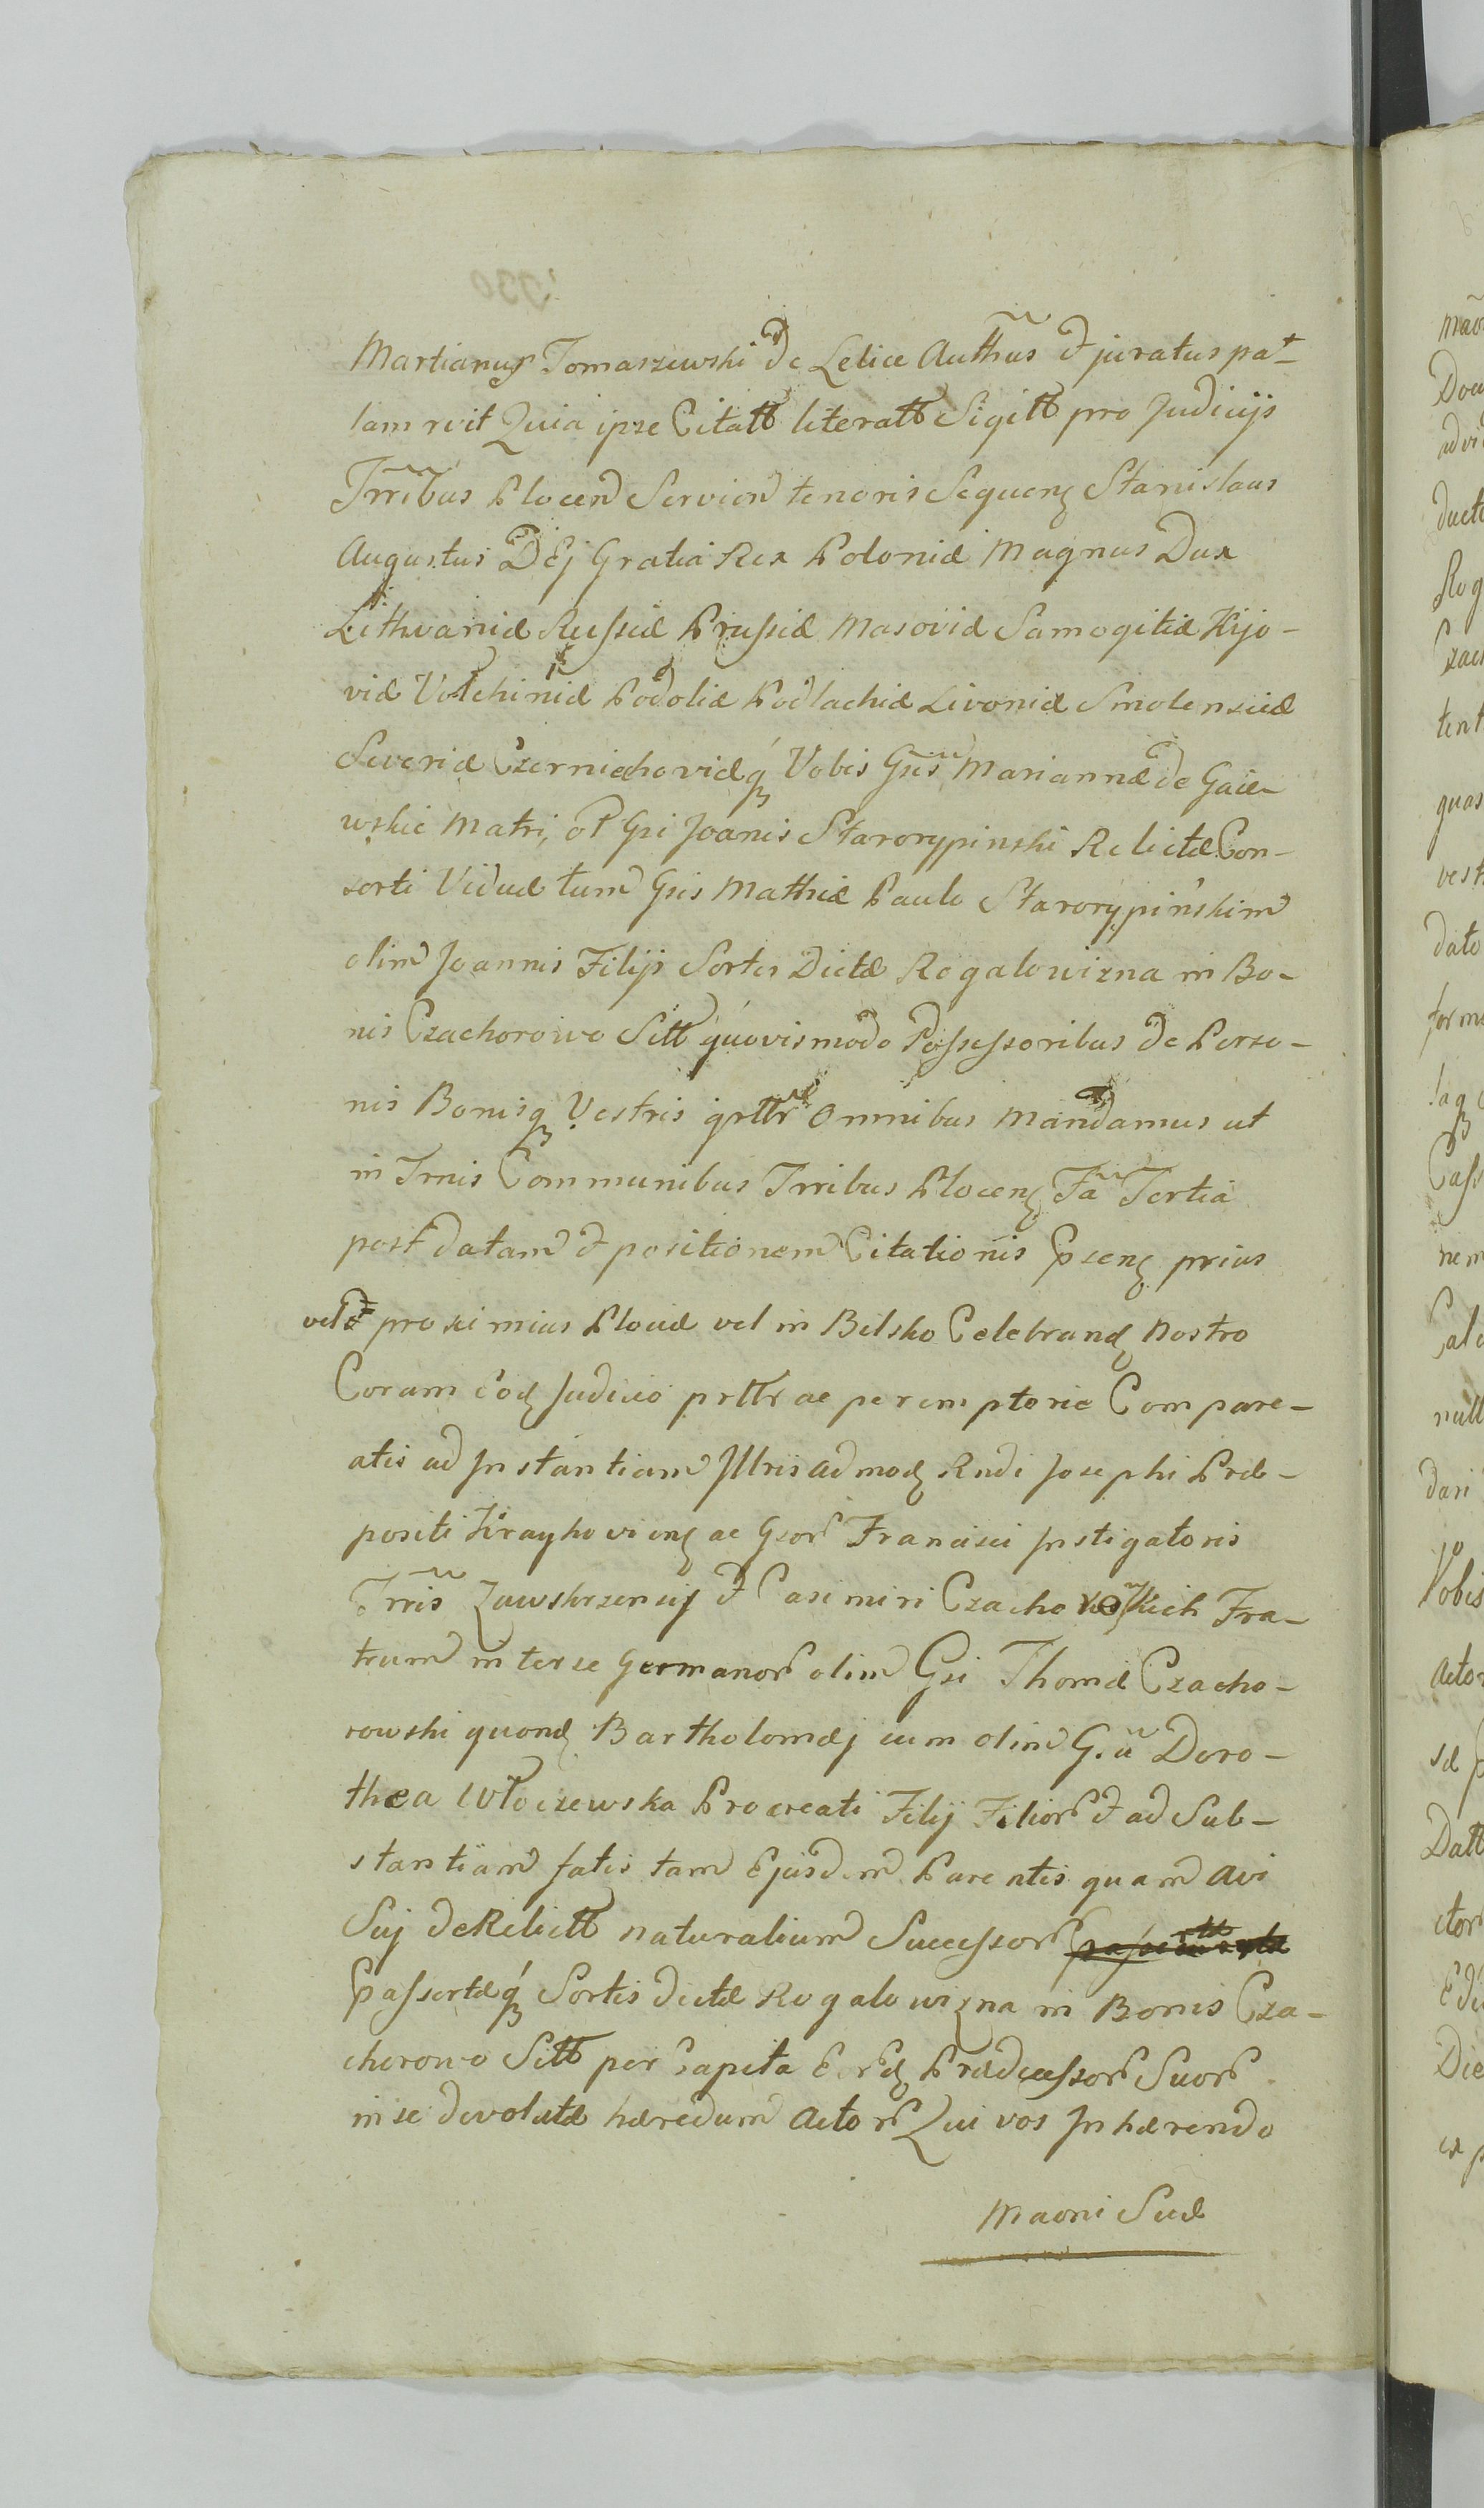 Martianus Tomaszewski de Lelice Authus et juratus pa-
lam rcit Quia ipse Citatt literatt Sigitt pro Judicijs
Trribus Plocen Servien tenoris Sequenq Stanislaus
Augustus DEj Gratia Rex Poloniæ Magnus Dux
Lithvaniæ Russiæ Prussiæ Masoviæ Samogitiæ Kijo-
viæ Volchiniæ Podoliæ Podlachiæ Livoniæ Smolensciæ
Severiæ Czerniechoviæq Vobis Gsis Mariannæ de Gaie-
wskie Matri, ol Gsi Joanis Starorypinski Relictæ Con-
sorti Viduæ tum Gsis Mathiæ Paulo Starorypinskim
olim Joannis Filijs Sortis Dictæ Rogalowizna in Bo-
nis Czachorowo Sitt quovismodo Possessoribus de Perso-
nis Bonisq Vestris grttr Omnibus Mandamus ut
in Trnis Communibus Trribus Plocenq Fa Tertia
post datam et positionem Citationis Psenq prius
vel proximius Plociæ vel in Bilsko Celebrandq Nostro
Coram eodq Judicio prttr ac peremptorie Compare-
atis ad Instantiam Jllris admodq Rndi Josephi Præ-
positi Kraykovienq ac Gsor Francisci Instigatoris
Trris Zawskrzensij et Casimiri Czachorowskich Fra-
trum inter se Germanor olim Gsi Thomæ Czacho-
rowski quondq Bartholomæj cum olim G. a Doro-
thea Wloczewska Procreati Filij Filior et ad Sub-
stantiam fatis tam Ejusdem Parentis quam Avi
Suj deRelictt naturalium Successor
Passertæq Sortis dictæ Rogalowizna in Bonis Cza-
chorowo Sitt per Capita Eordq Prædecessor Suor
in se devolutæ hæredum Actor Qui vos Inhærendo
Maoni Suæ